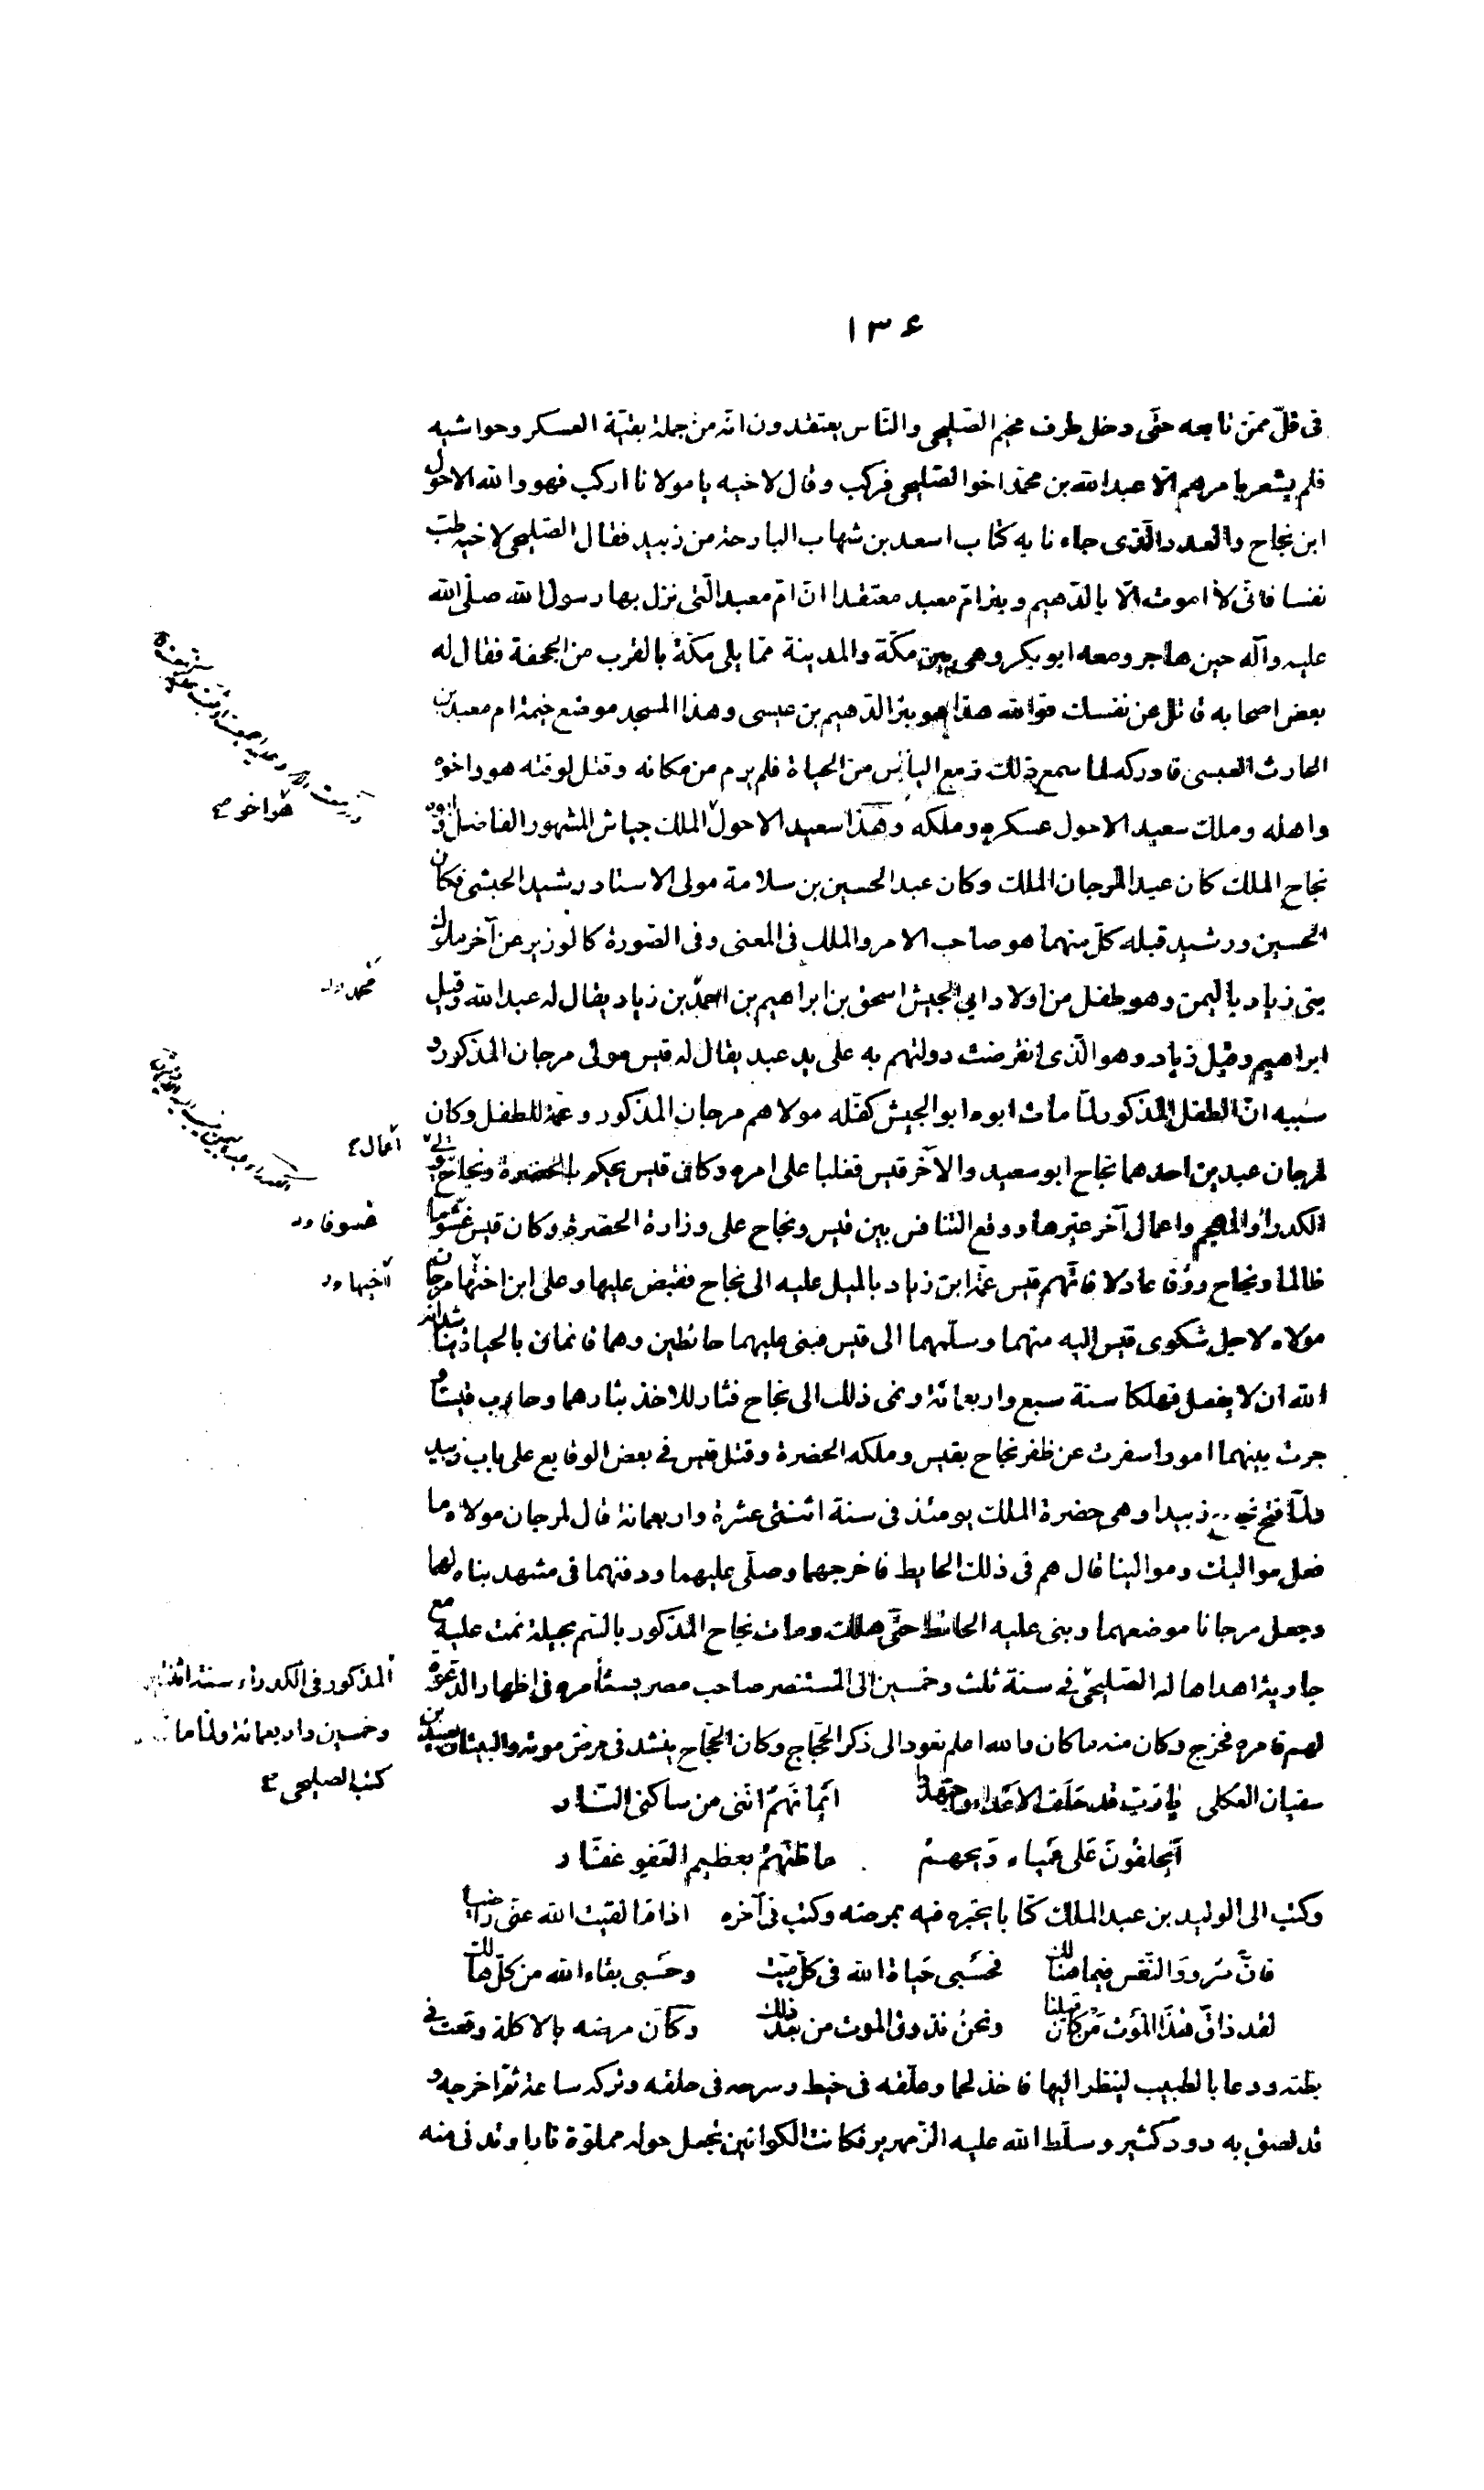 ١٣۶
فى قلّ ممّن تابعه حتّى دخل طرف مخيم الصّليحى والنّاس يعتقدون انّه من جملة بقيّة العسكر وحواشيه
فلم يشعر بامرهم الّا عبد الله بن محمّد اخو الصّليحى فركب وقال لاخيه يا مولانا اركب فهو والله الاحول
ابن نجاح والعدد الّذى جاءنا به كتاب اسعد بن شهاب البارحة من زبيد فقال الصّليحى لاخيه طب
نفسا فانّى لا اموت الّا بالدّهيم وبئر امّ معبد معتقدا انّ امّ معبد الّتى نزل بها رسول الله صلّى الله
عليه وآله حين هاجر ومعه ابو بكر وهى بين مكّة والمدينة ممّا يلى مكّة بالقرب من الجحفة فقال له
بعض اصحابه قاتل عن نفسك فوالله هذا هو بئر الدّهيم بن عيسى وهذا المسجد موضع خيمة ام معبد بن
الحارث العبسى فادركه لما سمع ذلك زمع اليأس من الحياة فلم يرم من مكانه وقتل لوقته هو واخوه
هو اخو
واهله وملك سعيد الاحول عسكره وملكه وهذا سعيد الاحول الملك جياش المشهور الفاضل وابوه
نجاح الملك كان عبد المرجان الملك وكان عبد الحسين بن سلامة مولى الاستاد رشيد الحبشى فكان
الحسين ورشيد قبله كلّ منهما هو صاحب الامر والملك فى المعنى وفى الصّورة كالوزير عن آخر ملوك
بنى زياد باليمن وهو طفل من اولاد ابى الجيش اسحق بن ابراهيم بن احمد بن زياد يقال له عبد الله وقيل
محمد
ابراهيم وقيل زياد وهو الّذى انقرضت دولتهم به على يد عبد يقال له قيس مولى مرجان المذكور و
سببه انّ الطفل المذكور لمّا مات ابوه ابو الجيش كفّله مولاهم مرجان المذكور وعمّة للطفل وكان
لمرجان عبدين احدهما نجاح ابو سعيد والآخر قيس فغلبا على امره وكان قيس يحكم بالحضرة ونجاح يتولّى
اعمال
الكدراء والمهجم واعمال آخر غيرها ووقع التنافس بين قيس ونجاح على وزارة الحضرة وكان قيس غشوما
غسوفا
ظالما ونجاح رؤفا عادلا فاتّهم قيس عمّة ابن زياد بالميل عليه الى نجاح فقبض عليها وعلى ابن اختها مرجان
اخيها
مولاه لاجل شكوى قيس اليه منهما وسلّمهما الى قيس فبنى عليهما حائطين وهما قائمان بالحياة يناشدانه
الله ان لا يفعل فهلكا سنة سبع واربعمائة ونمى ذلك الى نجاح فثار للاخذ بثارهما وحارب قيسا و
جرت بينهما امور اسفرت عن ظفر نجاح بقيس وملكه الحضرة وقتل قيس فى بعض الوقايع على باب زبيد
ولمّا فتح نجاح زبيدا وهى حضرة الملك يومئذ فى سنة اثنتى عشرة واربعمائة قال لمرجان مولاه ما
فعل مواليك وموالينا قال هم فى ذلك الحايط فاخرجهما وصلّى عليهما ودفنهما فى مشهد بناه لهما
وجعل مرجانا موضعهما وبنى عليه الحائط حتّى هلك ومات نجاح المذكور بالسّم بحيلة تمت عليه مع
جارية اهداها له الصّليحى فى سنة ثلث وخمسين الى المستنصر صاحب مصر يستأمره فى اظهار الدّعوة
المذكور فى الكدراء سنة اثنتين
وخمسين واربعمائة ولمّا مات
كتب الصليحى
لهم فامره فخرج وكان منه ما كان والله اعلم نعود الى ذكر الحجّاج وكان الحجّاج ينشد فى مرض موته والبيتان لعبيد بن
سفيان العكلى يا ربّ قد حلف الاعداء واجتهدوا ايمانهم انّنى من ساكنى النّار
أيحلفون على عمياء ويحهم ما ظنّهم بعظيم العفو غفّار
وكتب الى الوليد بن عبد الملك كتابا يخبره فيه بمرضه وكتب فى آخره اذا ما لقيت الله عنّى راضيا
فانّ سرور النّفس فيما هنالك فحسبى حياة الله فى كلّ ميّت وحسبى بقاء الله من كلّ هالك
لقد ذاق هذا الموت من كان قبلنا ونحن نذوق الموت من بعد ذلك وكان مرضه بالاكلة وقعت فى
بطنه ودعا بالطبيب لينظر اليها فاخذ لحما وعلّقه فى خيط وسرحه فى حلقه وتركه ساعة ثمّ اخرجه و
قد لصق به دود كثير وسلّط الله عليه الزّمهرير فكانت الكوانين تجعل حوله مملوّة نارا وتدنى منه